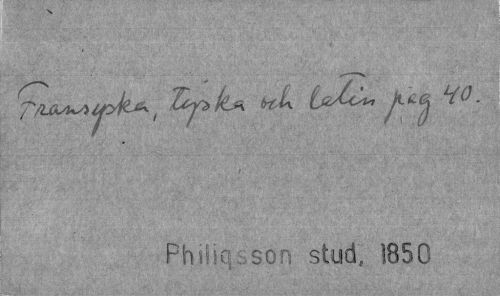 Fransyska, tyska och latin pag 40.
Philiqsson stud, 1850